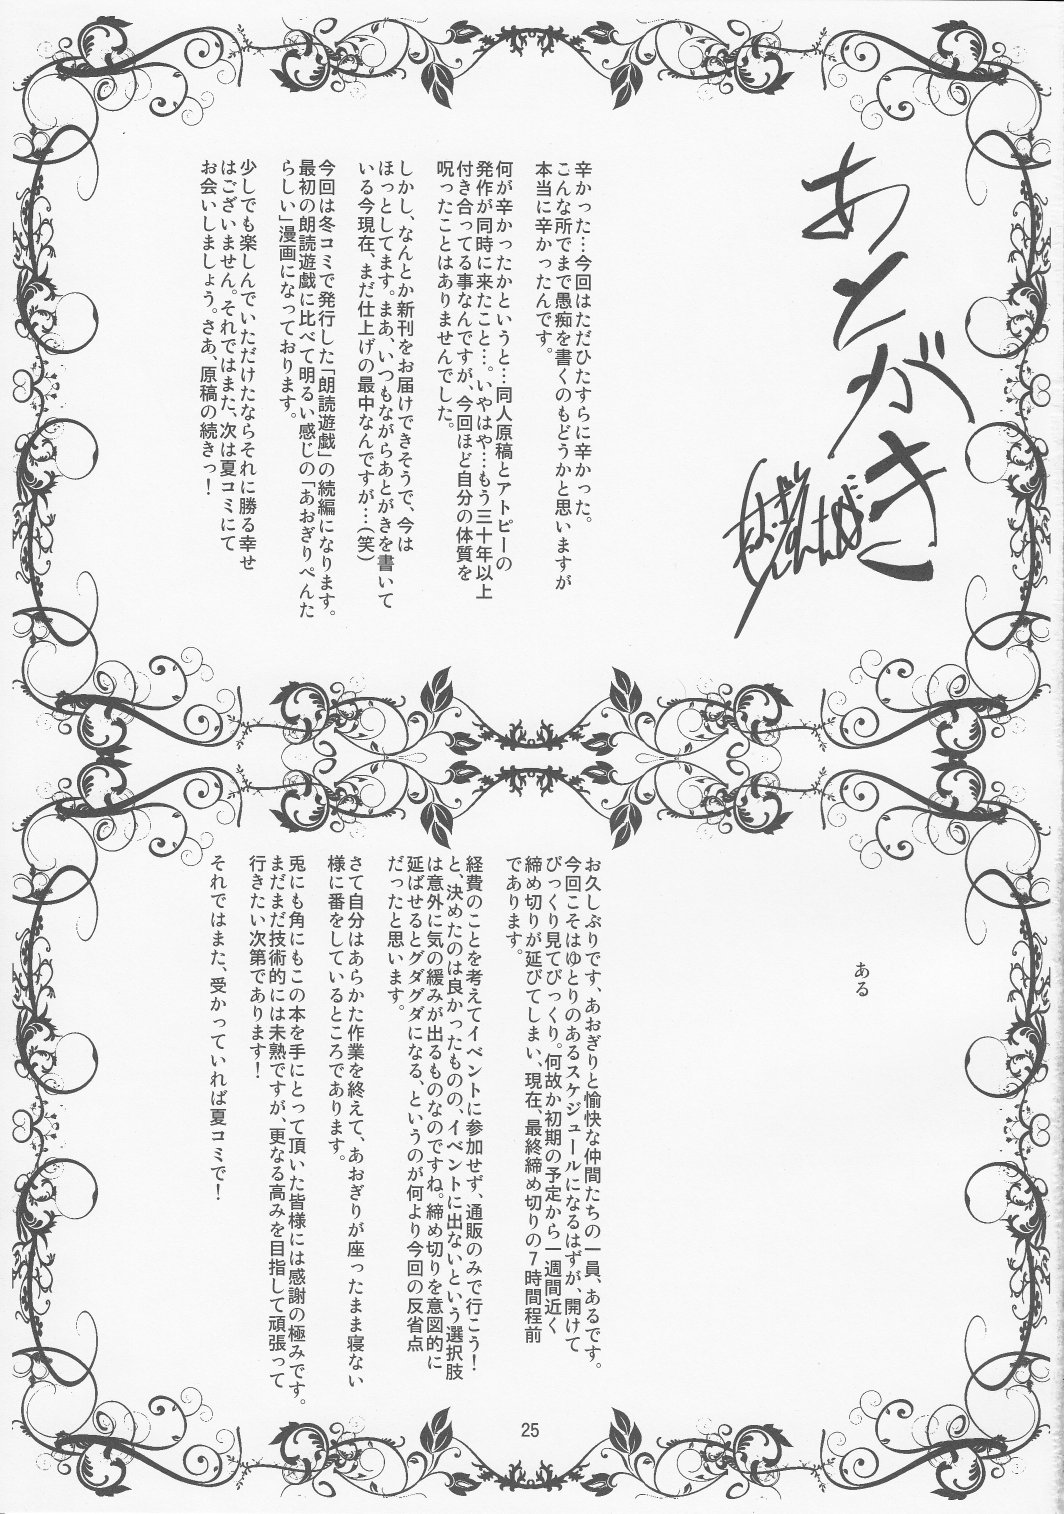 あとがき
辛かった…今回はただひたすらに辛かった。
こんな所でまで愚痴を書くのもどうかと思いますが
本当に辛かったんです。
何が辛かったかというと…同人原稿とアトピーの
発作が同時に来たこと…。いやはや…もう三十年以上
付き合ってる事なんですが、今回ほど自分の体質を
呪ったことはありませんでした。
しかし、なんとか新刊をお届けできそうで、今は
ほっとしてます。まあ、いつもながらあとがきを書いて
いる今現在、まだ仕上げの最中なんですが…(笑)
今回は冬コミで発行した「朗読遊戯」の続編になります。
最初の朗読遊戯に比べて明るい感じの「あおぎりぺんた
らしい」漫画になっております。
少しでも楽しんでいただけたならそれに勝る幸せ
はございません。それではまた、次は夏コミにて
お会いしましょう。さあ、原稿の続きっ！
ある
お久しぶりです、あおぎりと愉快な仲間たちの一員、あるです。
今回こそはゆとりのあるスケジュールになるはずが、開けて
びっくり見てびっくり。何故か初期の予定から一週間近く
締め切りが延びてしまい、現在、最終締め切りの7時間程前
であります。
経費のことを考えてイベントに参加せず、通販のみで行こう！
と、決めたのは良かったものの、イベントに出ないという選択肢
は意外に気の緩みが出るものなのですね。締め切りを意図的に
延ばせるとグダグダになる、というのが何より今回の反省点
だったと思います。
さて自分はあらかた作業を終えて、あおぎりが座ったまま寝ない
様に番をしているところであります。
兎にも角にもこの本を手にとって頂いた皆様には感謝の極みです。
まだまだ技術的には未熟ですが、更なる高みを目指して頑張って
行きたい次第であります！
それではまた、受かっていれば夏コミで！
25